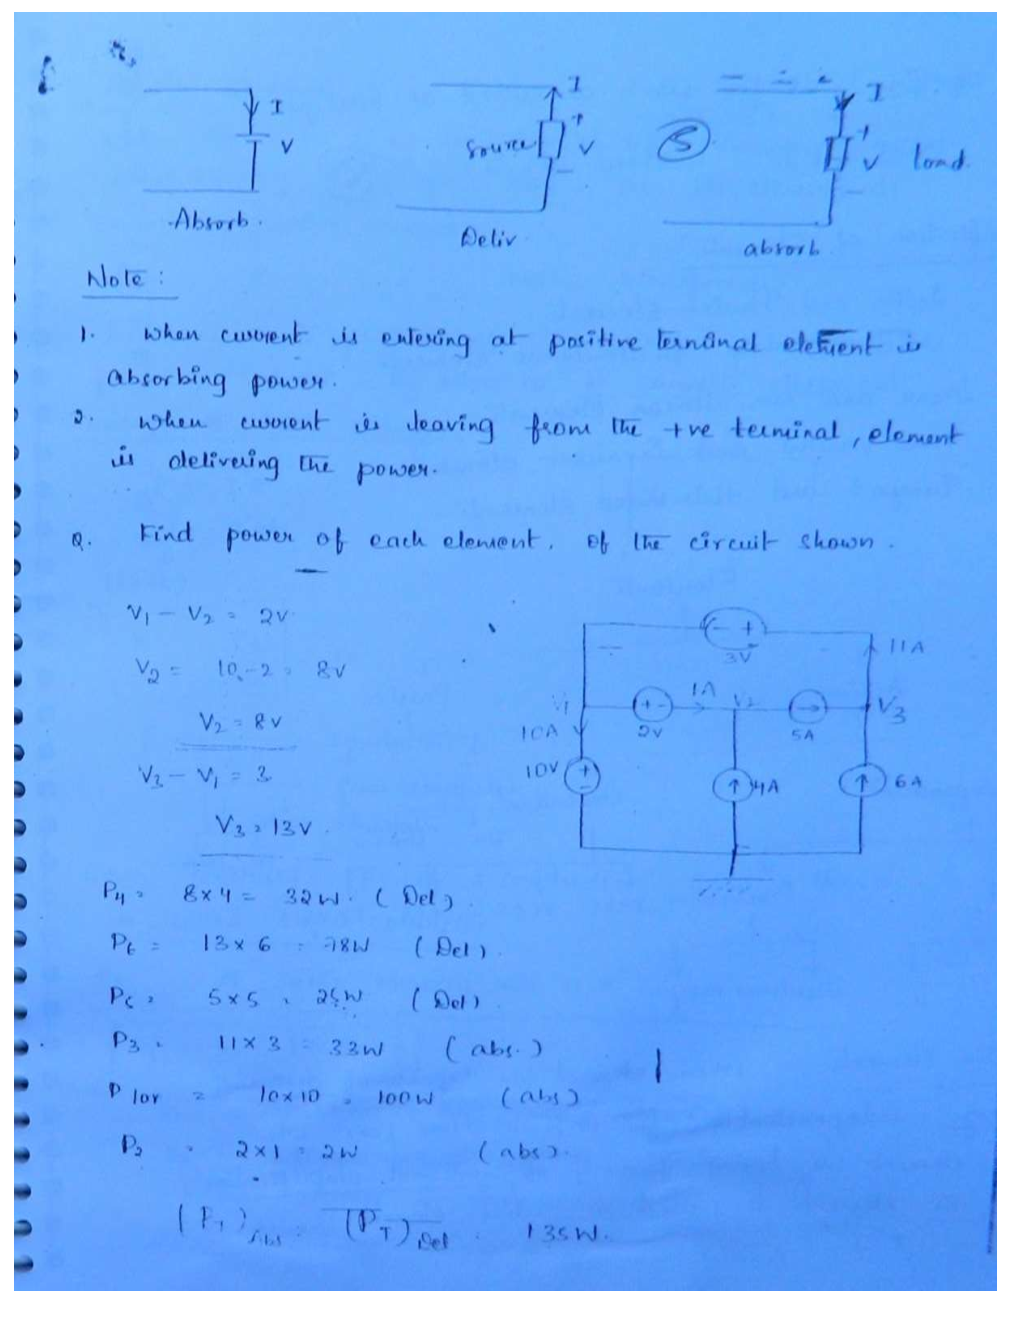 I
V
Absorb.
I
Source
+
V
-
Deliv
5
I
+
V
load.
-
absorb
Note :
1. When current is entering at positive terminal element is
absorbing power.
2. When current is leaving from the +ve terminal, element
is delivering the power.
Q. Find power of each element. of the circuit shown.
V1 - V2 = 2V
V2 = 10 - 2 = 8V
V2 = 8V
V3 - V1 = 3
V3 = 13V.
- +
3V
11A
V1
+ -
2V
1A
V2
5A
V3
10A
10V
+
-
4A
6A
P4 = 8 x 4 = 32W. (Del)
P6 = 13 x 6 = 78W (Del).
P5 = 5 x 5 = 25W (Del)
P3 = 11 x 3 = 33W (abs.)
P10V = 10x10 = 100W (abs)
P2 = 2 x 1 = 2W (abs).
(PT)Abs = (PT)Del = 135W.